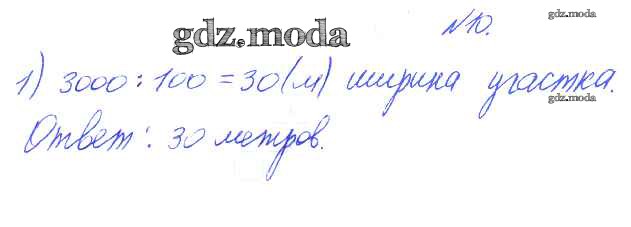 gdz.moda
№10.
gdz.moda
1) 3000 : 100 = 30 (м) ширина участка.
gdz.moda
Ответ: 30 метров.